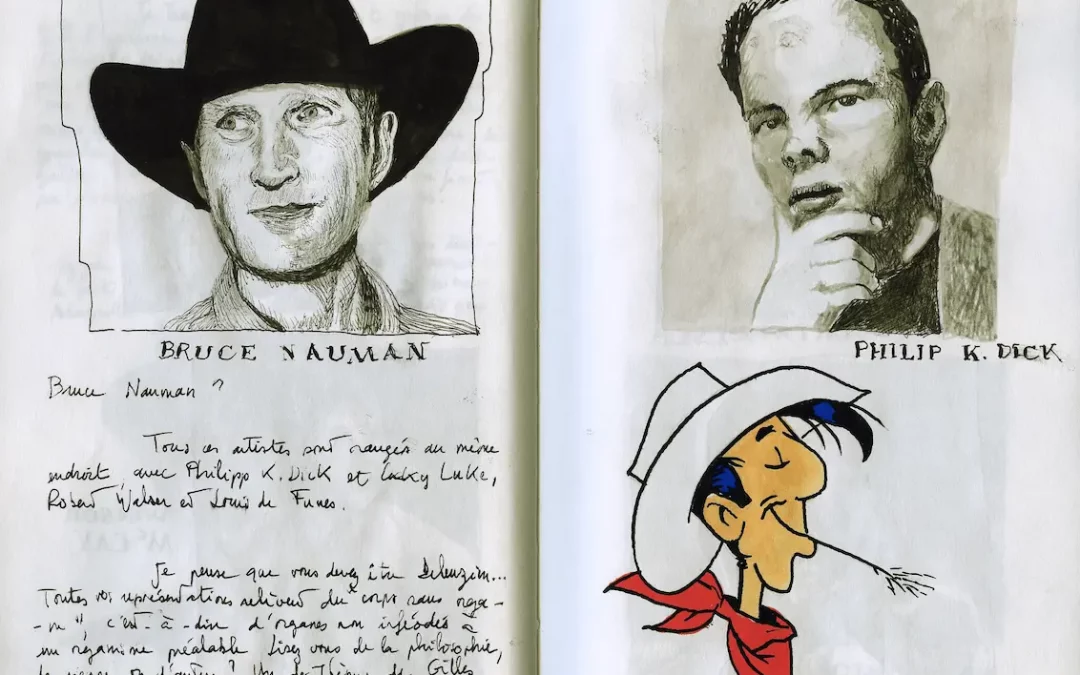 BRUCE NAUMAN
Bruce Nauman ?
Tous ces artistes sont rangés au même
endroit, avec Philipp K. Dick et Lucky Luke,
Robert Walser et Louis de Funes.
Je pense que vous devez être Deleuzien...
Toutes vos représentations relèvent du "corps sans orga-
-ne", c'est-à-dire d'organes non inféodés à
un organisme préalable. Lisez vous de la philosophie,
de Gilles
PHILIP K. DICK